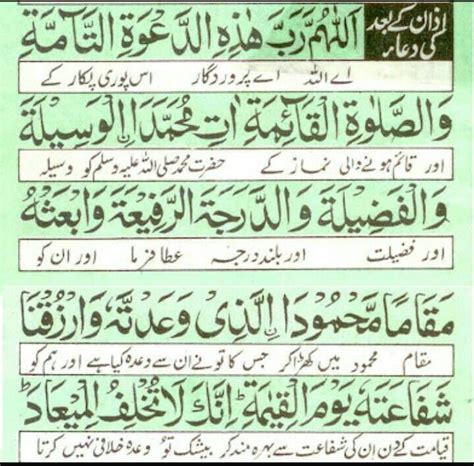 اذان کے بعد کی دعاء
اَللّٰهُمَّ رَبَّ هٰذِهِ الدَّعْوَةِ التَّآمَّةِ
اے اللہ اے پروردگار اس پوری پکار کے
وَالصَّلٰوةِ الْقَآئِمَةِ اٰتِ مُحَمَّدَ اِ۟لْوَسِيْلَةَ
اور قائم ہونے والی نماز کے حضرت محمد صلی اللہ علیہ وسلم کو وسیلہ
وَالْفَضِيْلَةَ وَالدَّرَجَةَ الرَّفِيْعَةَ وَابْعَثْهُ
اور فضیلت اور بلند درجہ عطا فرما اور ان کو
مَقَامًا مَّحْمُوْدَا اِ۟لَّذِيْ وَعَدْتَّهٗ وَارْزُقْنَا
مقام محمود میں کھڑا کر جس کا تو نے ان سے وعدہ کیا ہے اور ہم کو
شَفَاعَتَهٗ يَوْمَ الْقِيٰمَةِ ؕ اِنَّكَ لَا تُخْلِفُ الْمِيْعَادَ ؕ
قیامت کے دن ان کی شفاعت سے بہرہ مند کر بیشک تو وعدہ خلافی نہیں کرتا